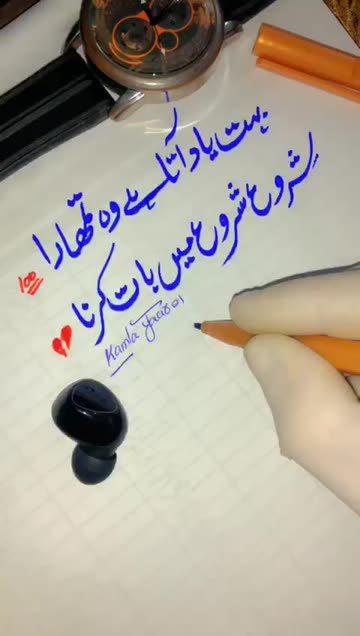 بہت یاد آتا ہے وہ تمھارا
شروع شروع میں بات کرنا
100
Kamla Yaar01